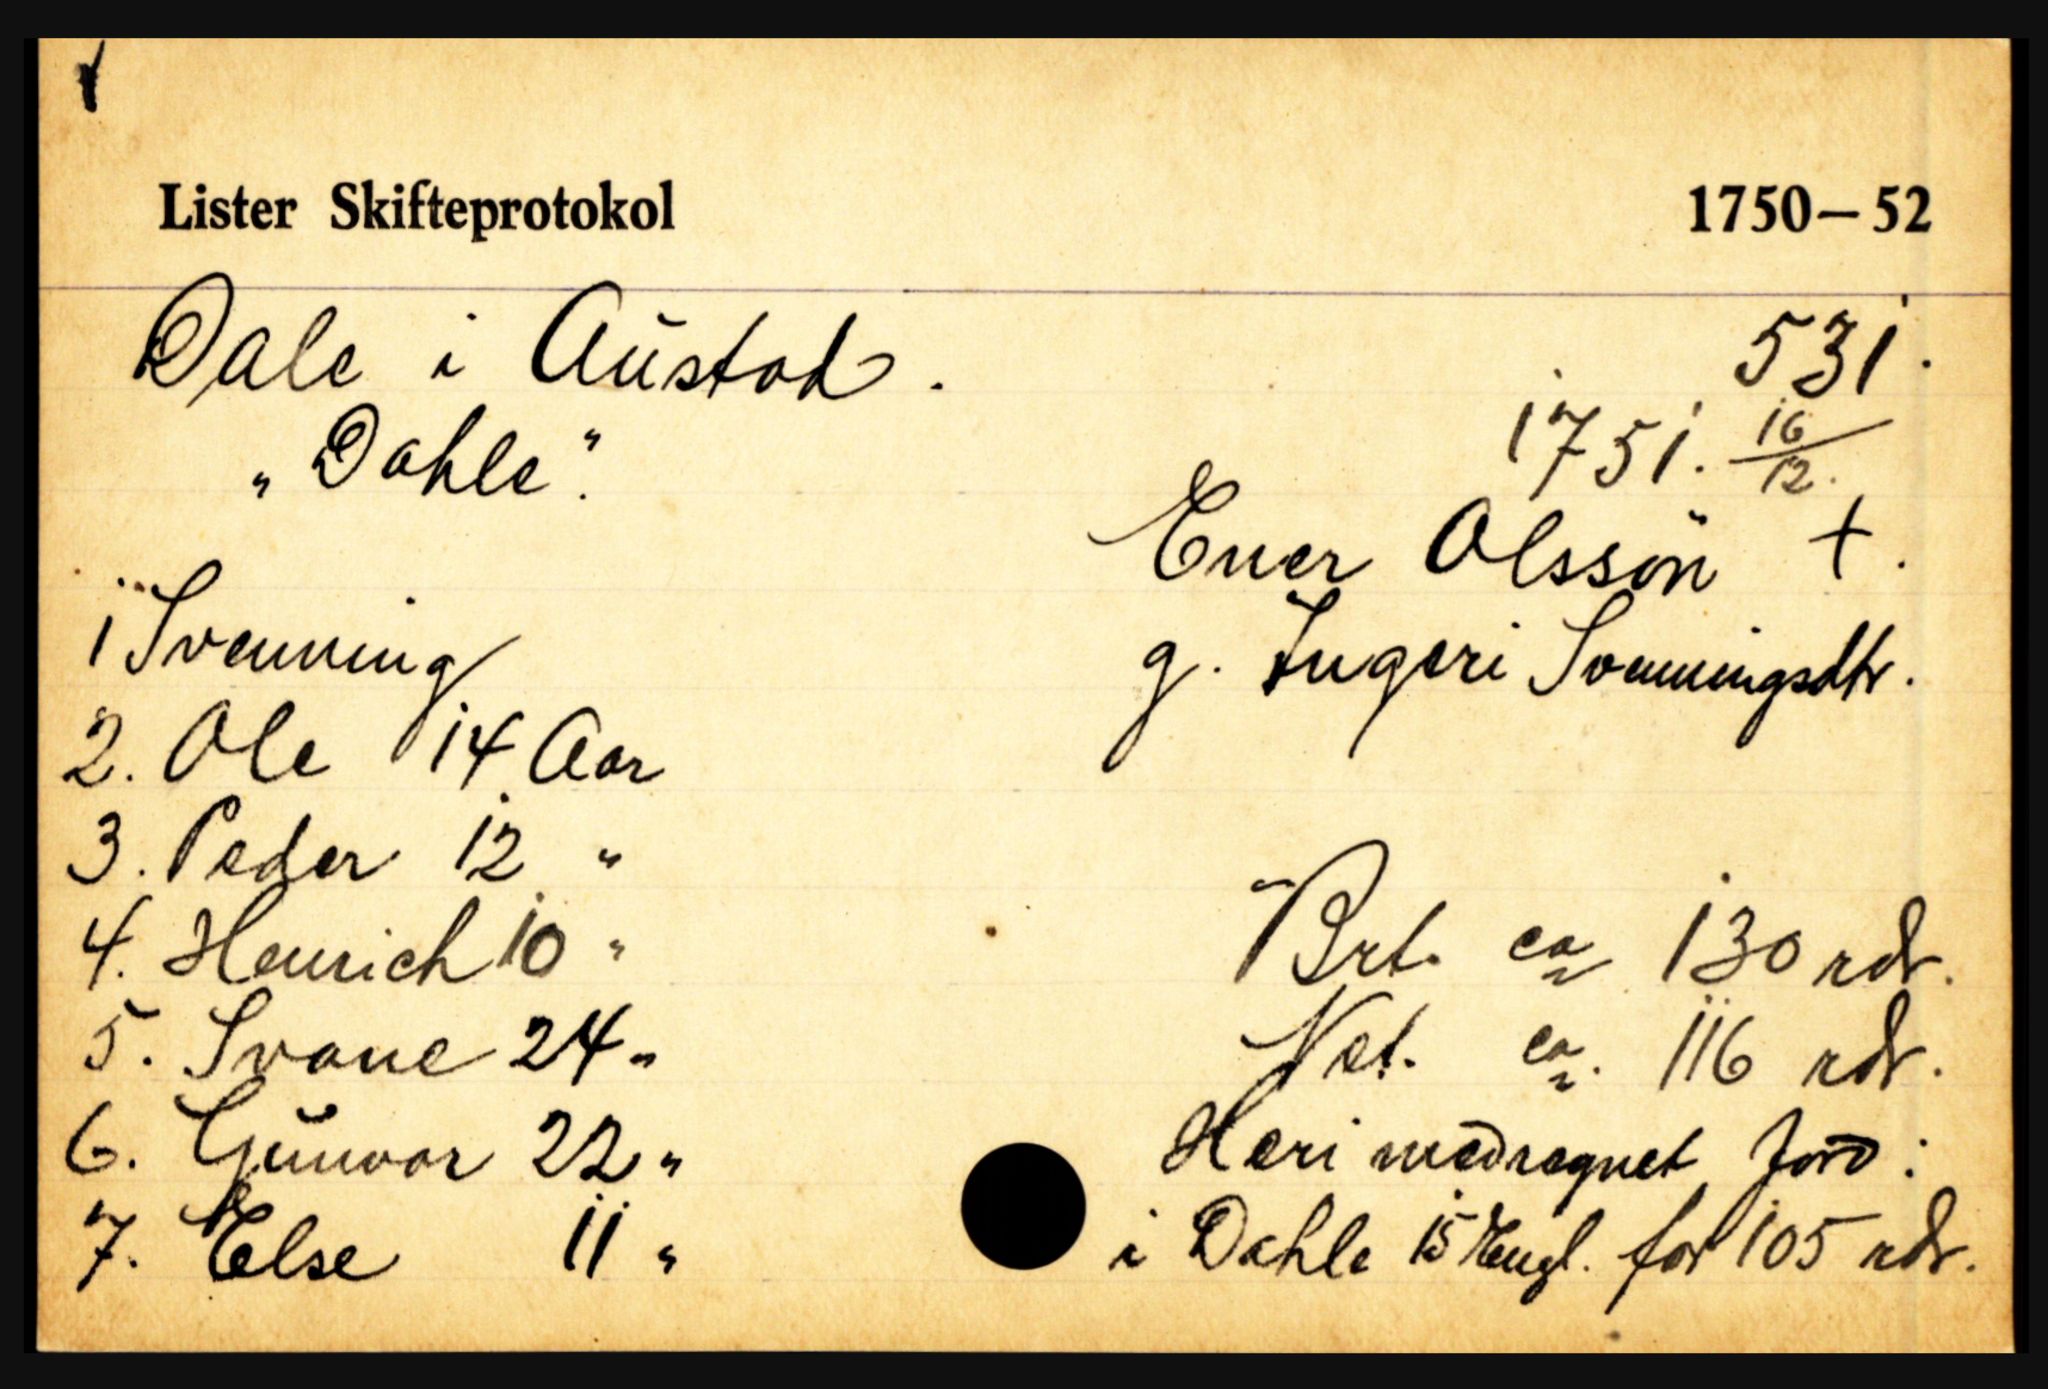 Lister Skifteprotokol 1750–52
Dale i Austad. 531.
„Dahle". 1751. 16/12.
Ener Olsson +.
g. Ingeri Svenningsdtr.
1 Svenning
2. Ole 14 Aar
3. Peder 12 "
4. Henrich 10 "
5. Svane 24 "
6. Gunvor 22 "
7. Else 11 "
Brt. ca 130 rdr.
Net. ca. 116 rdr.
Heri medregnet Jord:
i Dahle 15 Engl. for 105 rdr.